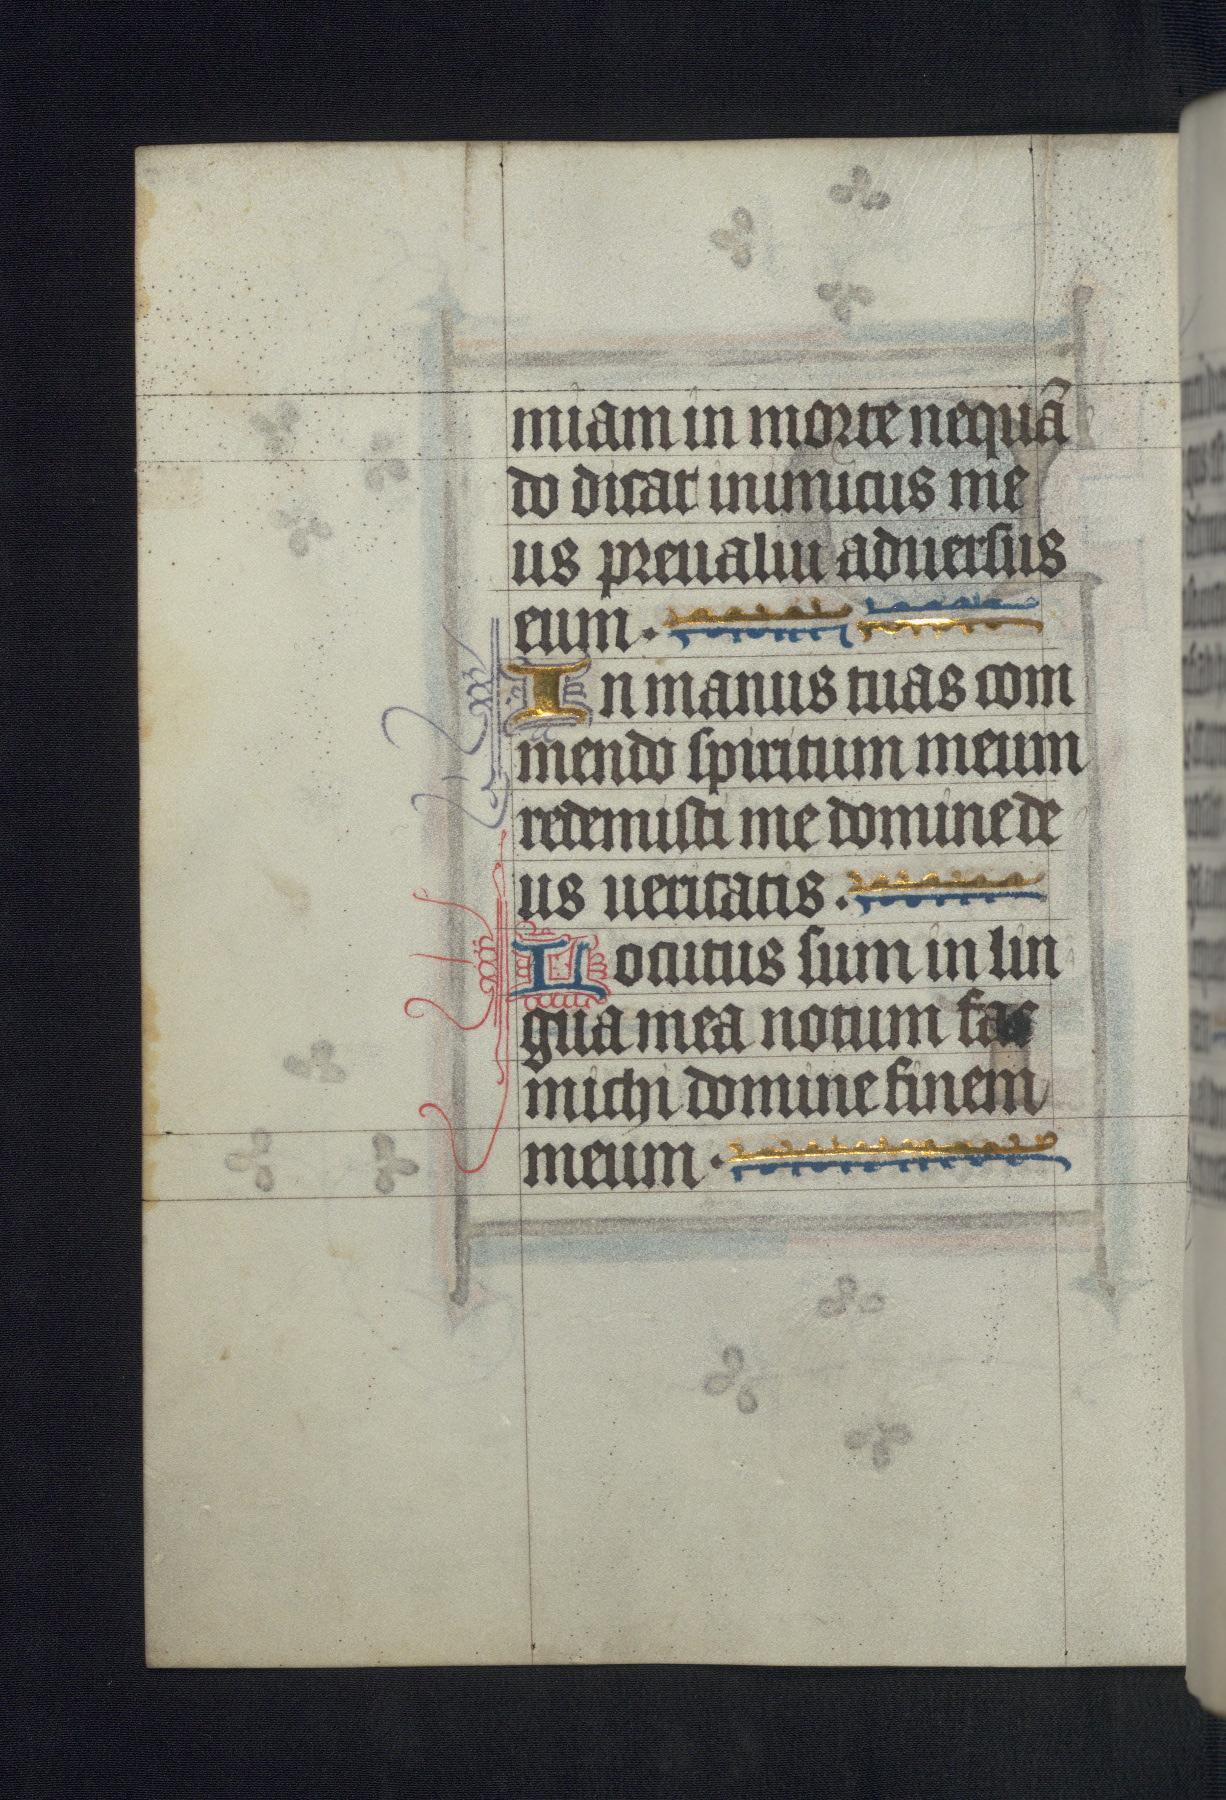 miam in morte nequā
do dicat inimicus me
us preualui aduersus
eum.
In manus tuas com
mendo spiritum meum
redemisti me domine de
us ueritatis.
Locutus sum in lin
gua mea notum fac
michi domine finem
meum.